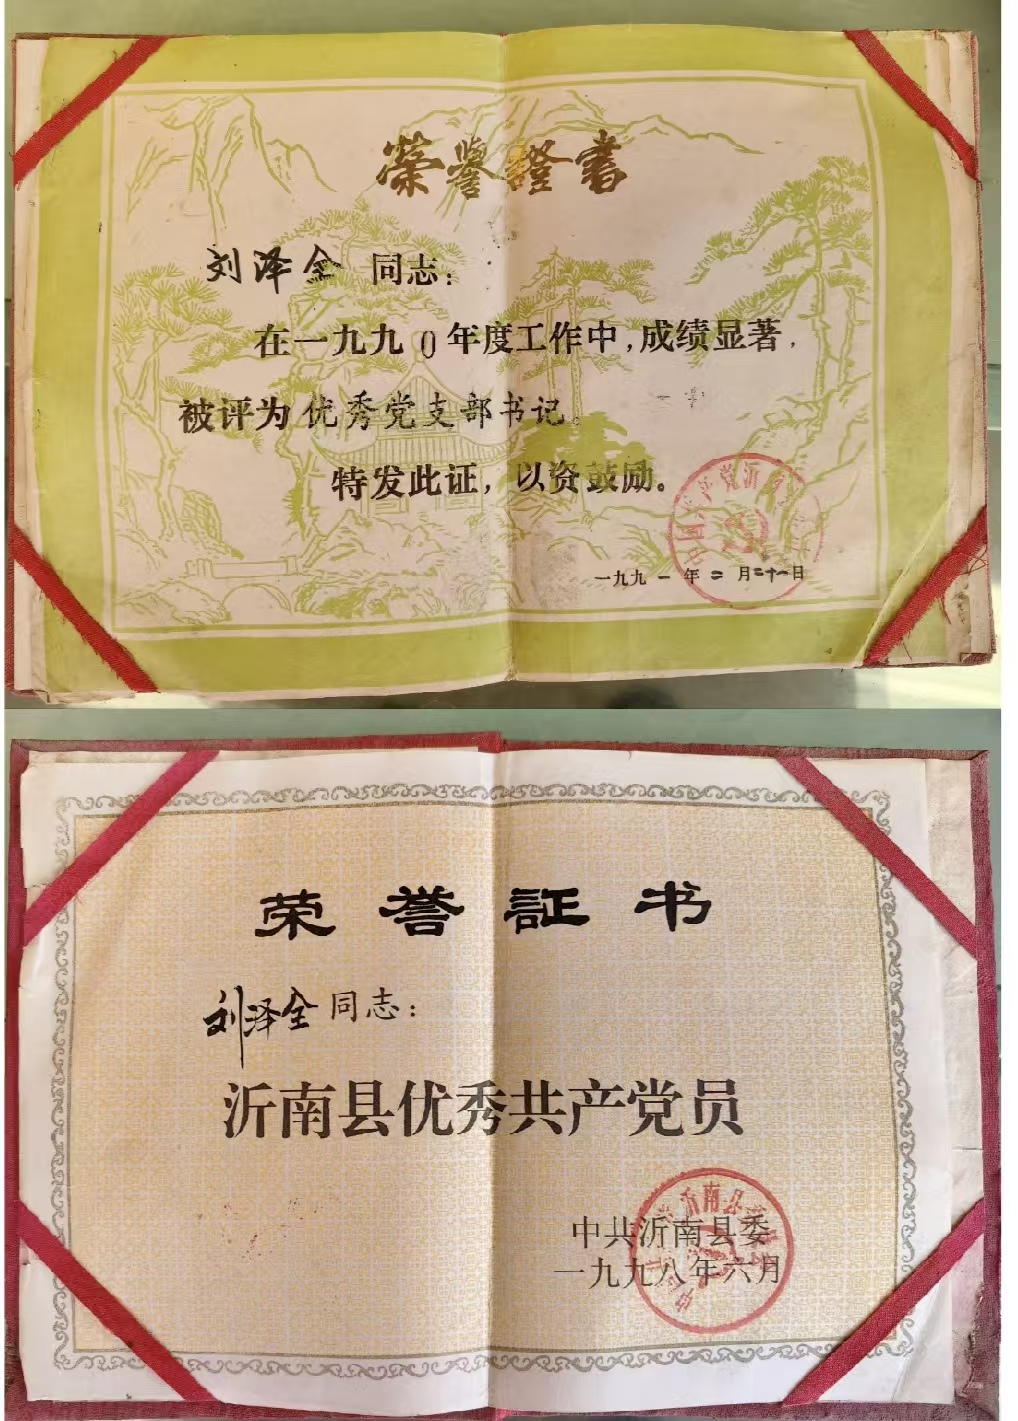 荣誉證書
刘泽全 同志：
在一九九0年度工作中，成绩显著，
被评为优秀党支部书记。
特发此证，以资鼓励。
一九九一年二月二十一日
荣誉証书
刘泽全同志：
沂南县优秀共产党员
中共沂南县委
一九九八年六月